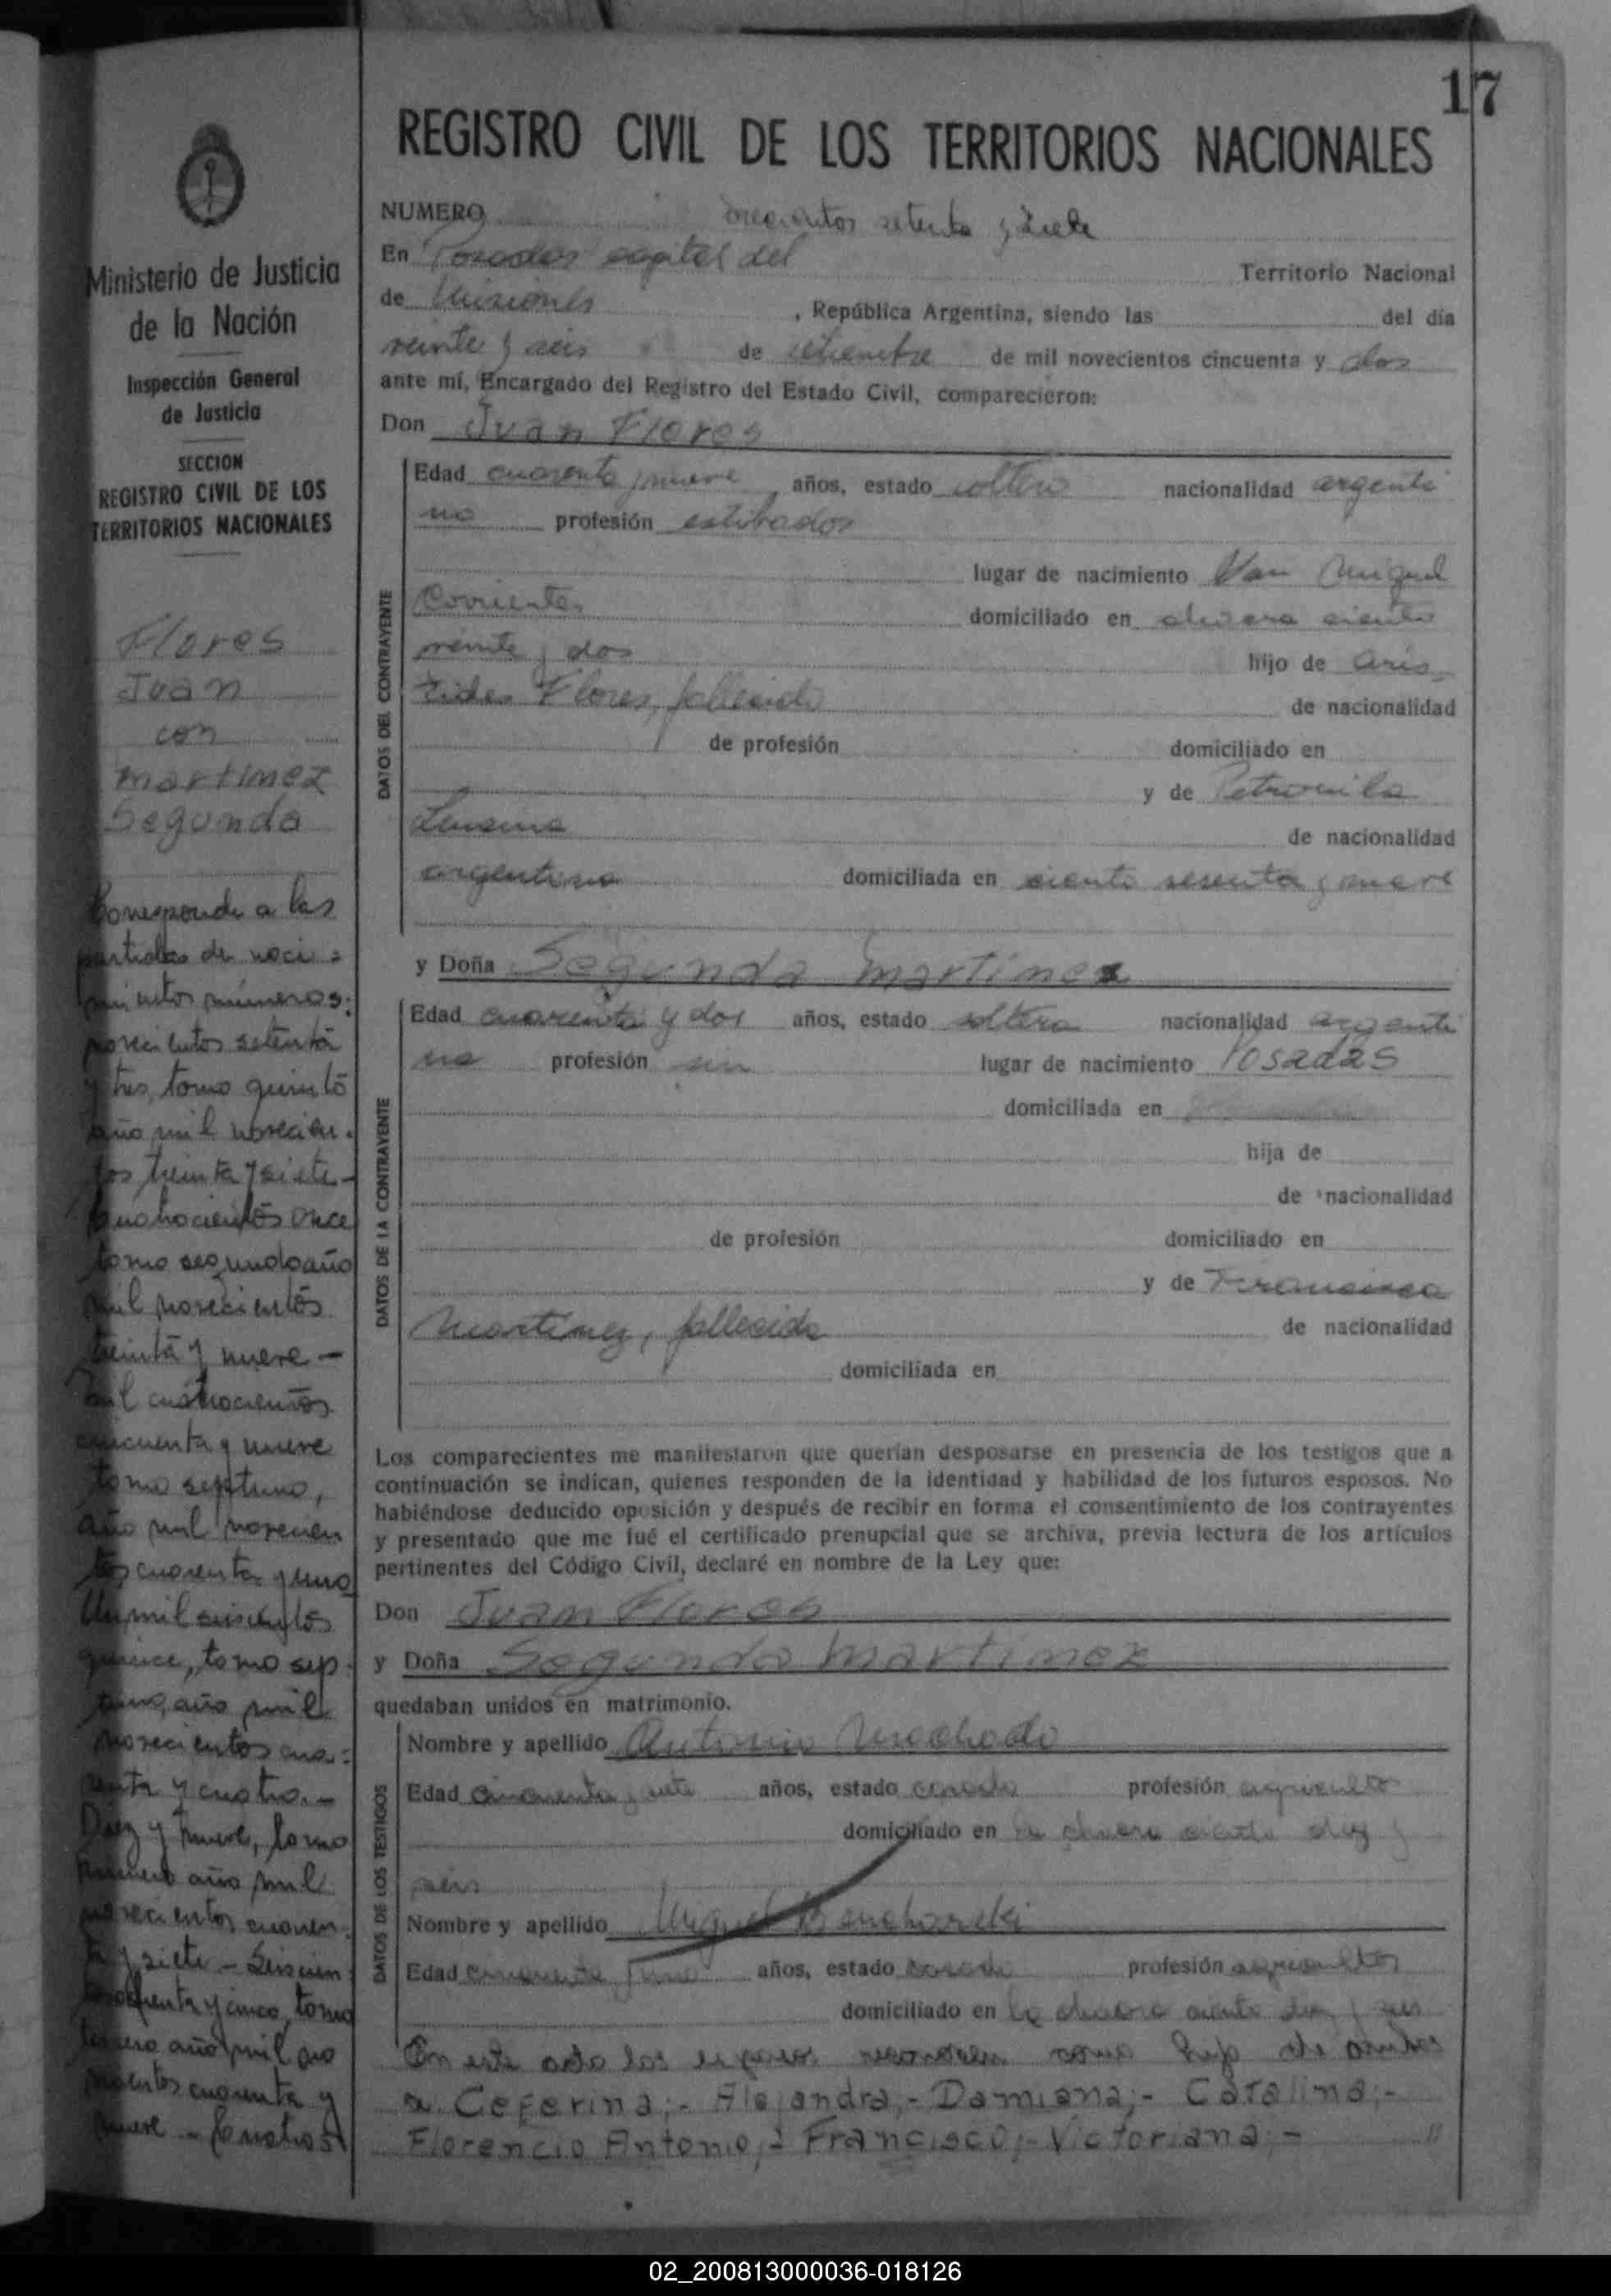 17
REGISTRO CIVIL DE LOS TERRITORIOS NACIONALES
Ministerio de Justicia
de la Nación
Inspección General
de Justicia
SECCION
REGISTRO CIVIL DE LOS
TERRITORIOS NACIONALES
Flores
Juan
con
Martinez
Segunda
Corresponde a las
partidas de naci-
mientos números:
novecientos setenta
y tres, tomo quinto
año mil novecien-
tos treinta y siete-
cuatrocientos once
tomo segundo año
mil novecientos
treinta y nueve-
mil cuatrocientos
cincuenta y nueve
tomo septimo,
año mil novecien
tos cuarenta y uno
mil seiscientos
quince, tomo sep-
timo, año mil
novecientos cua-
renta y cuatro.-
Diez y nueve, tomo
primero año mil
novecientos cuaren-
ta y siete - Seiscien
y cinco, tomo
tercero año mil no
vecientos cuarenta y
nueve -
NUMERO trecientos setenta y siete
En Posadas capital del Territorio Nacional
de Misiones, República Argentina, siendo las del día
veinte y seis de setiembre de mil novecientos cincuenta y dos
ante mí, Encargado del Registro del Estado Civil, comparecieron:
Don Juan Flores
DATOS DEL CONTRAYENTE
Edad cuarenta y nueve años, estado soltero nacionalidad argenti
no profesión estibador
lugar de nacimiento San Miguel
Corrientes domiciliado en chacra ciento
veinte y dos hijo de Aris-
tides Flores, fallecido de nacionalidad
de profesión domiciliado en
y de Petronila
de nacionalidad
argentina domiciliada en ciento sesenta y nueve
y Doña Segunda Martinez
DATOS DE LA CONTRAYENTE
Edad cuarenta y dos años, estado soltera nacionalidad argenti
na profesión sin lugar de nacimiento Posadas
domiciliada en
hija de
de nacionalidad
de profesión domiciliado en
y de Francisca
Martinez, fallecida de nacionalidad
domiciliada en
Los comparecientes me manifestaron que querían desposarse en presencia de los testigos que a
continuación se indican, quienes responden de la identidad y habilidad de los futuros esposos. No
habiéndose deducido oposición y después de recibir en forma el consentimiento de los contrayentes
y presentado que me fué el certificado prenupcial que se archiva, previa lectura de los artículos
pertinentes del Código Civil, declaré en nombre de la Ley que:
Don Juan Flores
y Doña Segunda Martinez
quedaban unidos en matrimonio.
DATOS DE LOS TESTIGOS
Nombre y apellido Antonio Machado
Edad cincuenta y siete años, estado casado profesión agriculto
domiciliado en la chacra ciento diez y
seis
Nombre y apellido Miguel
Edad cincuenta y uno años, estado casado profesión agricultor
domiciliado en la chacra ciento diez y seis
En este acto los esposos reconocen como hijo de ambos
a Ceferina;- Alejandra;- Damiana;- Catalina;-
Florencio Antonio;- Francisco;- Victoriana;- "
02_200813000036-018126